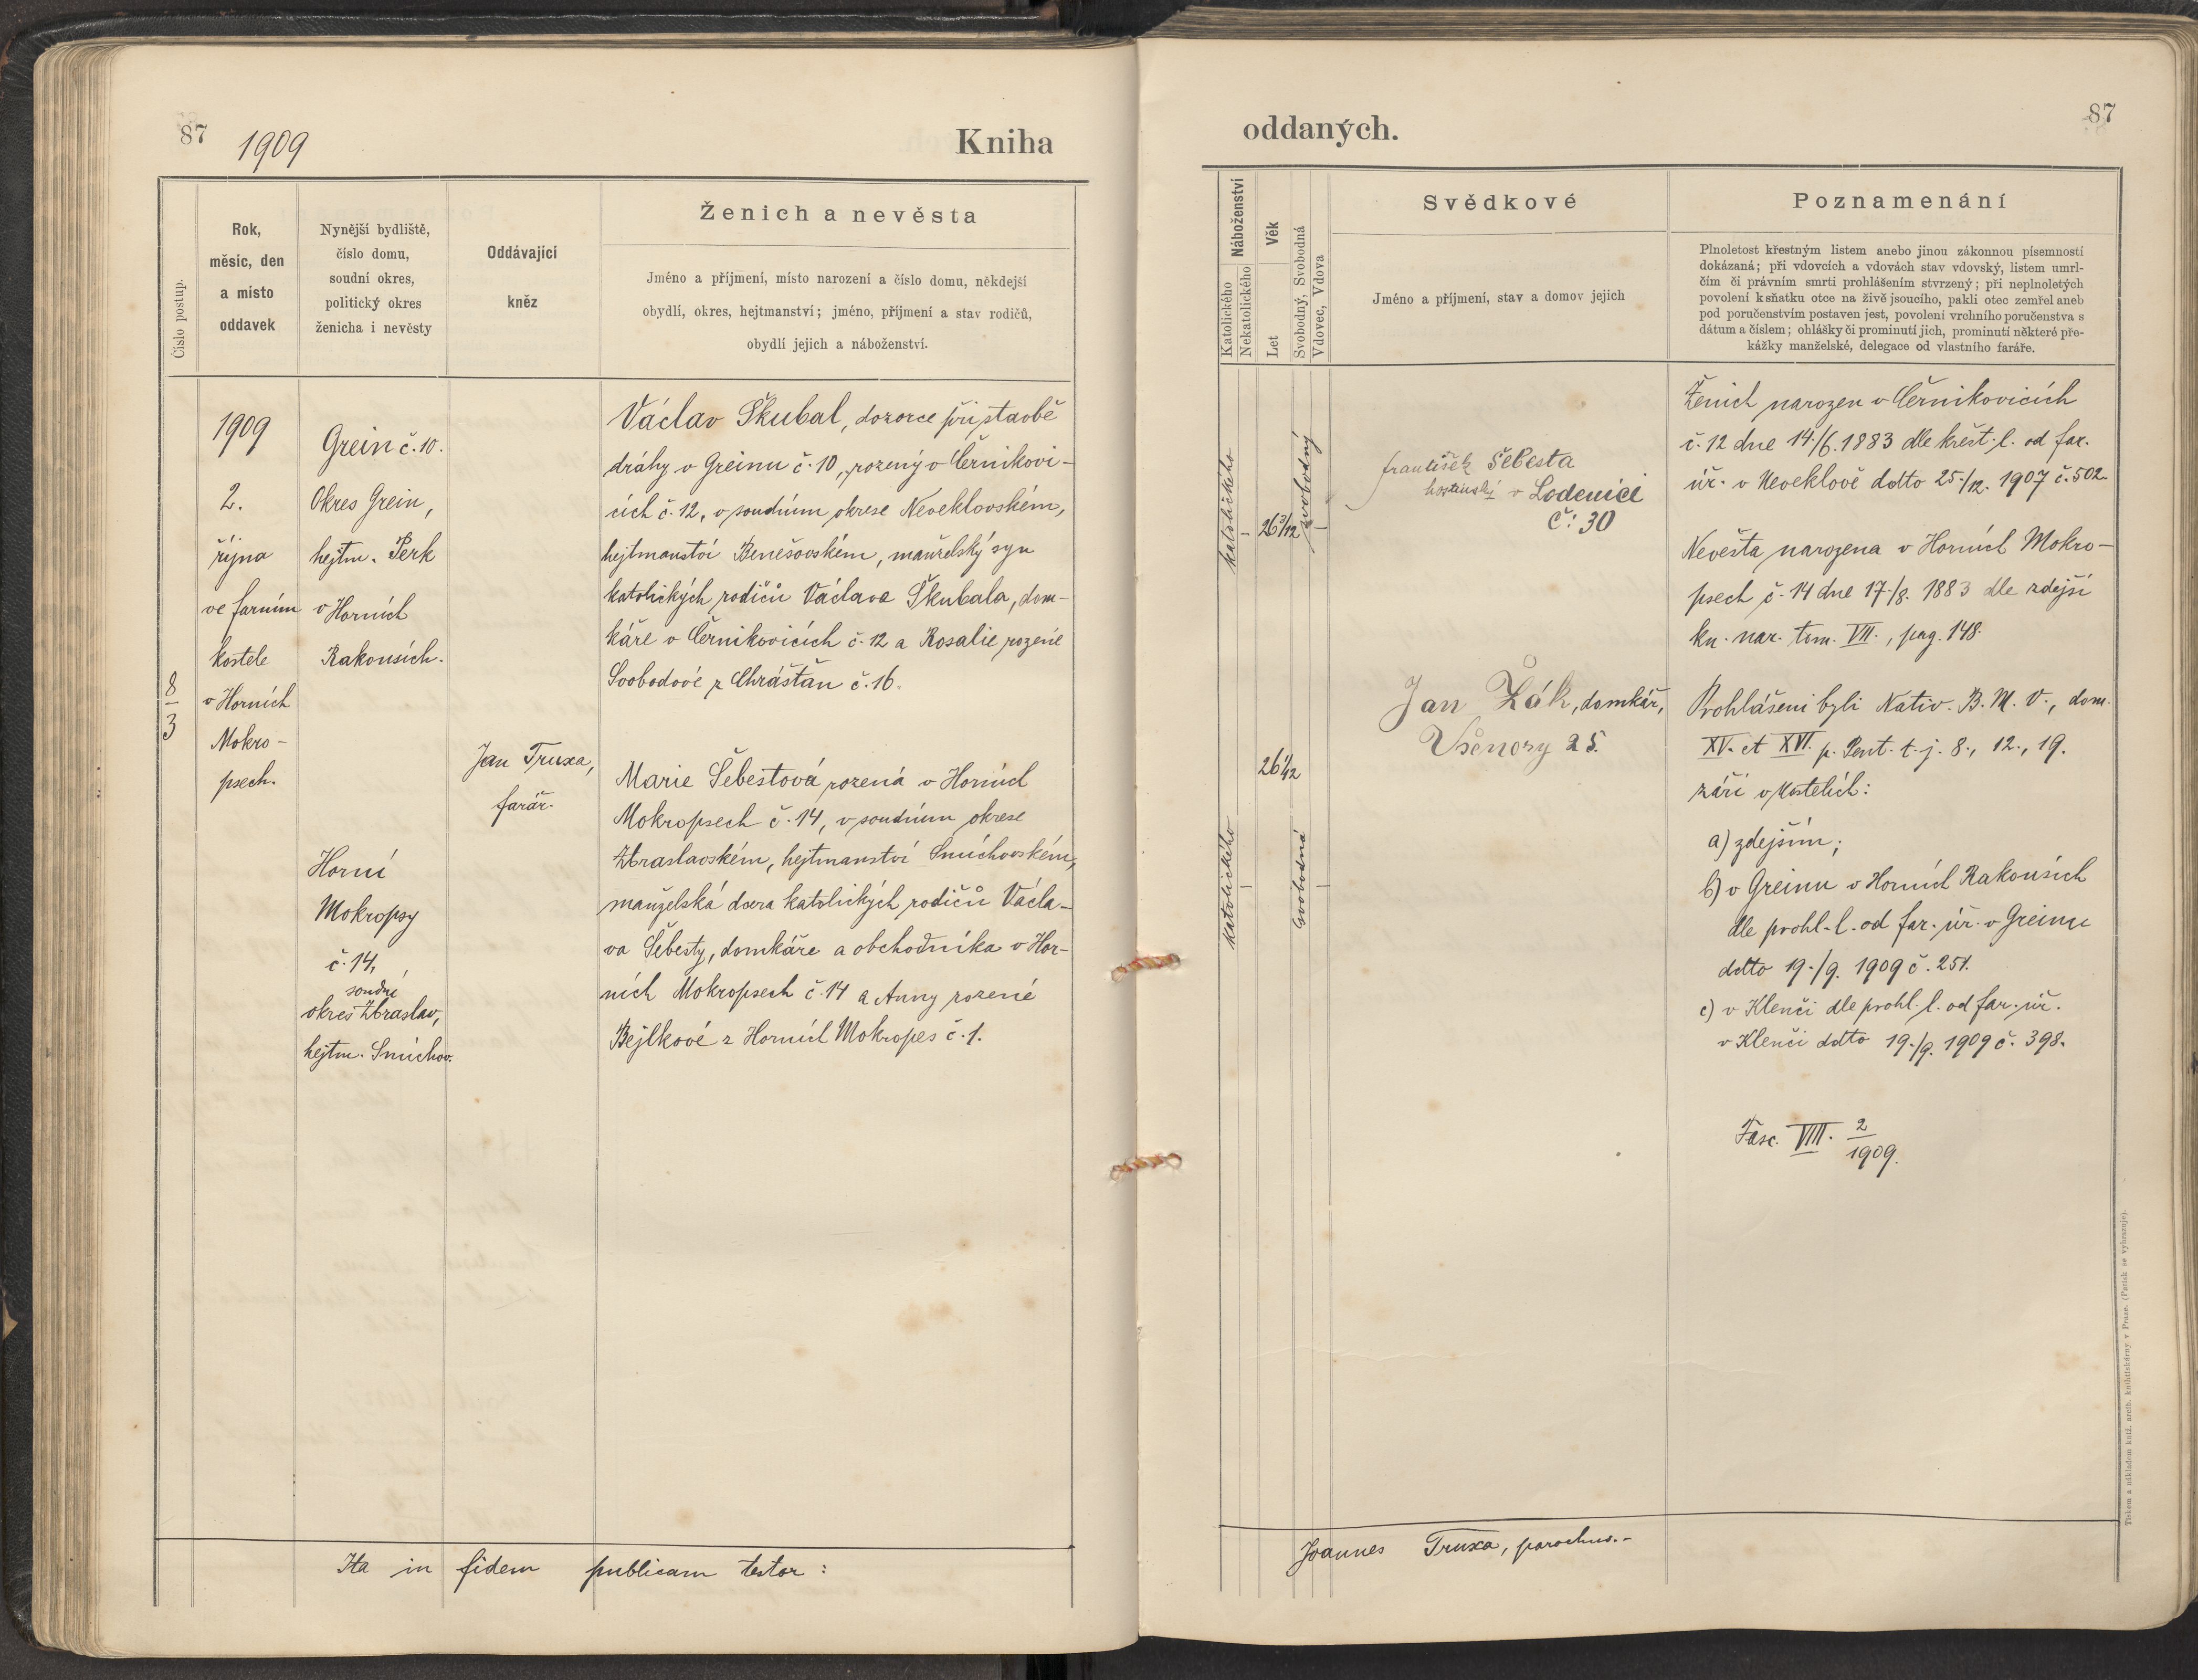 87
1909
Kniha
Číslo postup.
Rok,
měsíc, den
a místo
oddavek
Nynější bydliště,
číslo domu,
soudní okres,
politický okres
ženicha i nevěsty
Oddávající
kněz
Ženich a nevěsta
Jméno a příjmení, místo narození a číslo domu, někdejší
obydlí, okres, hejtmanství; jméno, příjmení a stav rodičů,
obydlí jejich a náboženství.
8
3
1909
2.
října
ve farním
kostele
v Horních
Mokro-
psech.
Grein č. 10.
Okres Grein,
hejtm. Perk
v Horních
Rakousích.
Horní
Mokropsy
č. 14,
soudní
okres Zbraslav,
hejtm. Smíchov.
Jan Truxa,
farář.
Václav Škubal, dozorce při stavbě
dráhy v Greinu č. 10, rozený v Černikovi-
cích č. 12, v soudním okrese Neveklovském,
hejtmanství Benešovském, manželský syn
katolických rodičů Václava Škubala, dom-
káře v Černikovicích č. 12 a Rosalie rozené
Svobodové z Chrášťan č. 16.
Marie Šebestová rozená v Horních
Mokropsech č. 14, v soudním okrese
Zbraslavském, hejtmanství Smíchovském,
manželská dcera katolických rodičů Václa-
va Šebesty, domkáře a obchodníka v Hor-
ních Mokropsech č. 14 a Anny rozené
Bejlkové z Horních Mokropes č. 1.
Ita in fidem publicam testor:
oddaných.
87
Náboženství
Katolického
Nekatolického
Věk
Let
Svobodný, Svobodná
Vdovec, Vdova
Svědkové
Jméno a příjmení, stav a domov jejich
Poznamenání
Plnoletost křestným listem anebo jinou zákonnou písemností
dokázaná; při vdovcích a vdovách stav vdovský, listem umrl-
čím či právním smrti prohlášením stvrzený; při neplnoletých
povolení k sňatku otce na živě jsoucího, pakli otec zemřel aneb
pod poručenstvím postaven jest, povolení vrchního poručenstva s
dátum a číslem; ohlášky či prominutí jich, prominutí některé pře-
kážky manželské, delegace od vlastního faráře.
katolického
26 3/12
svobodný
František Šebesta
hostinský v Lodenici
č: 30
Jan Žák, domkář,
Všenory 25.
26 1/12
katolického
svobodná
Ženich narozen v Černikovicích
č. 12 dne 14./6. 1883 dle křest. l. od far.
úř. v Neveklově ddto 25./12. 1907 č. 502.
Nevěsta narozena v Horních Mokro-
psech č. 14 dne 17./8. 1883 dle zdejší
kn. nar. tom. VII., pag. 148.
Prohlášeni byli Nativ. B. M. V., dom.
XV. et XVI. p. Pent. t. j. 8., 12., 19.
září v kostelích:
a) zdejším;
b) v Greinu v Horních Rakousích
dle prohl. l. od far. úř. v Greinu
ddto 19./9. 1909 č. 251.
c) v Klenčí dle prohl. l. od far. úř.
v Klenčí ddto 19./9. 1909 č. 398.
Fasc. VIII. 2
1909.
Joannes Truxa, parochus.-
Tiskem a nákladem kníž. arcib. knihtiskárny v Praze. (Patisk se vyhrazuje).